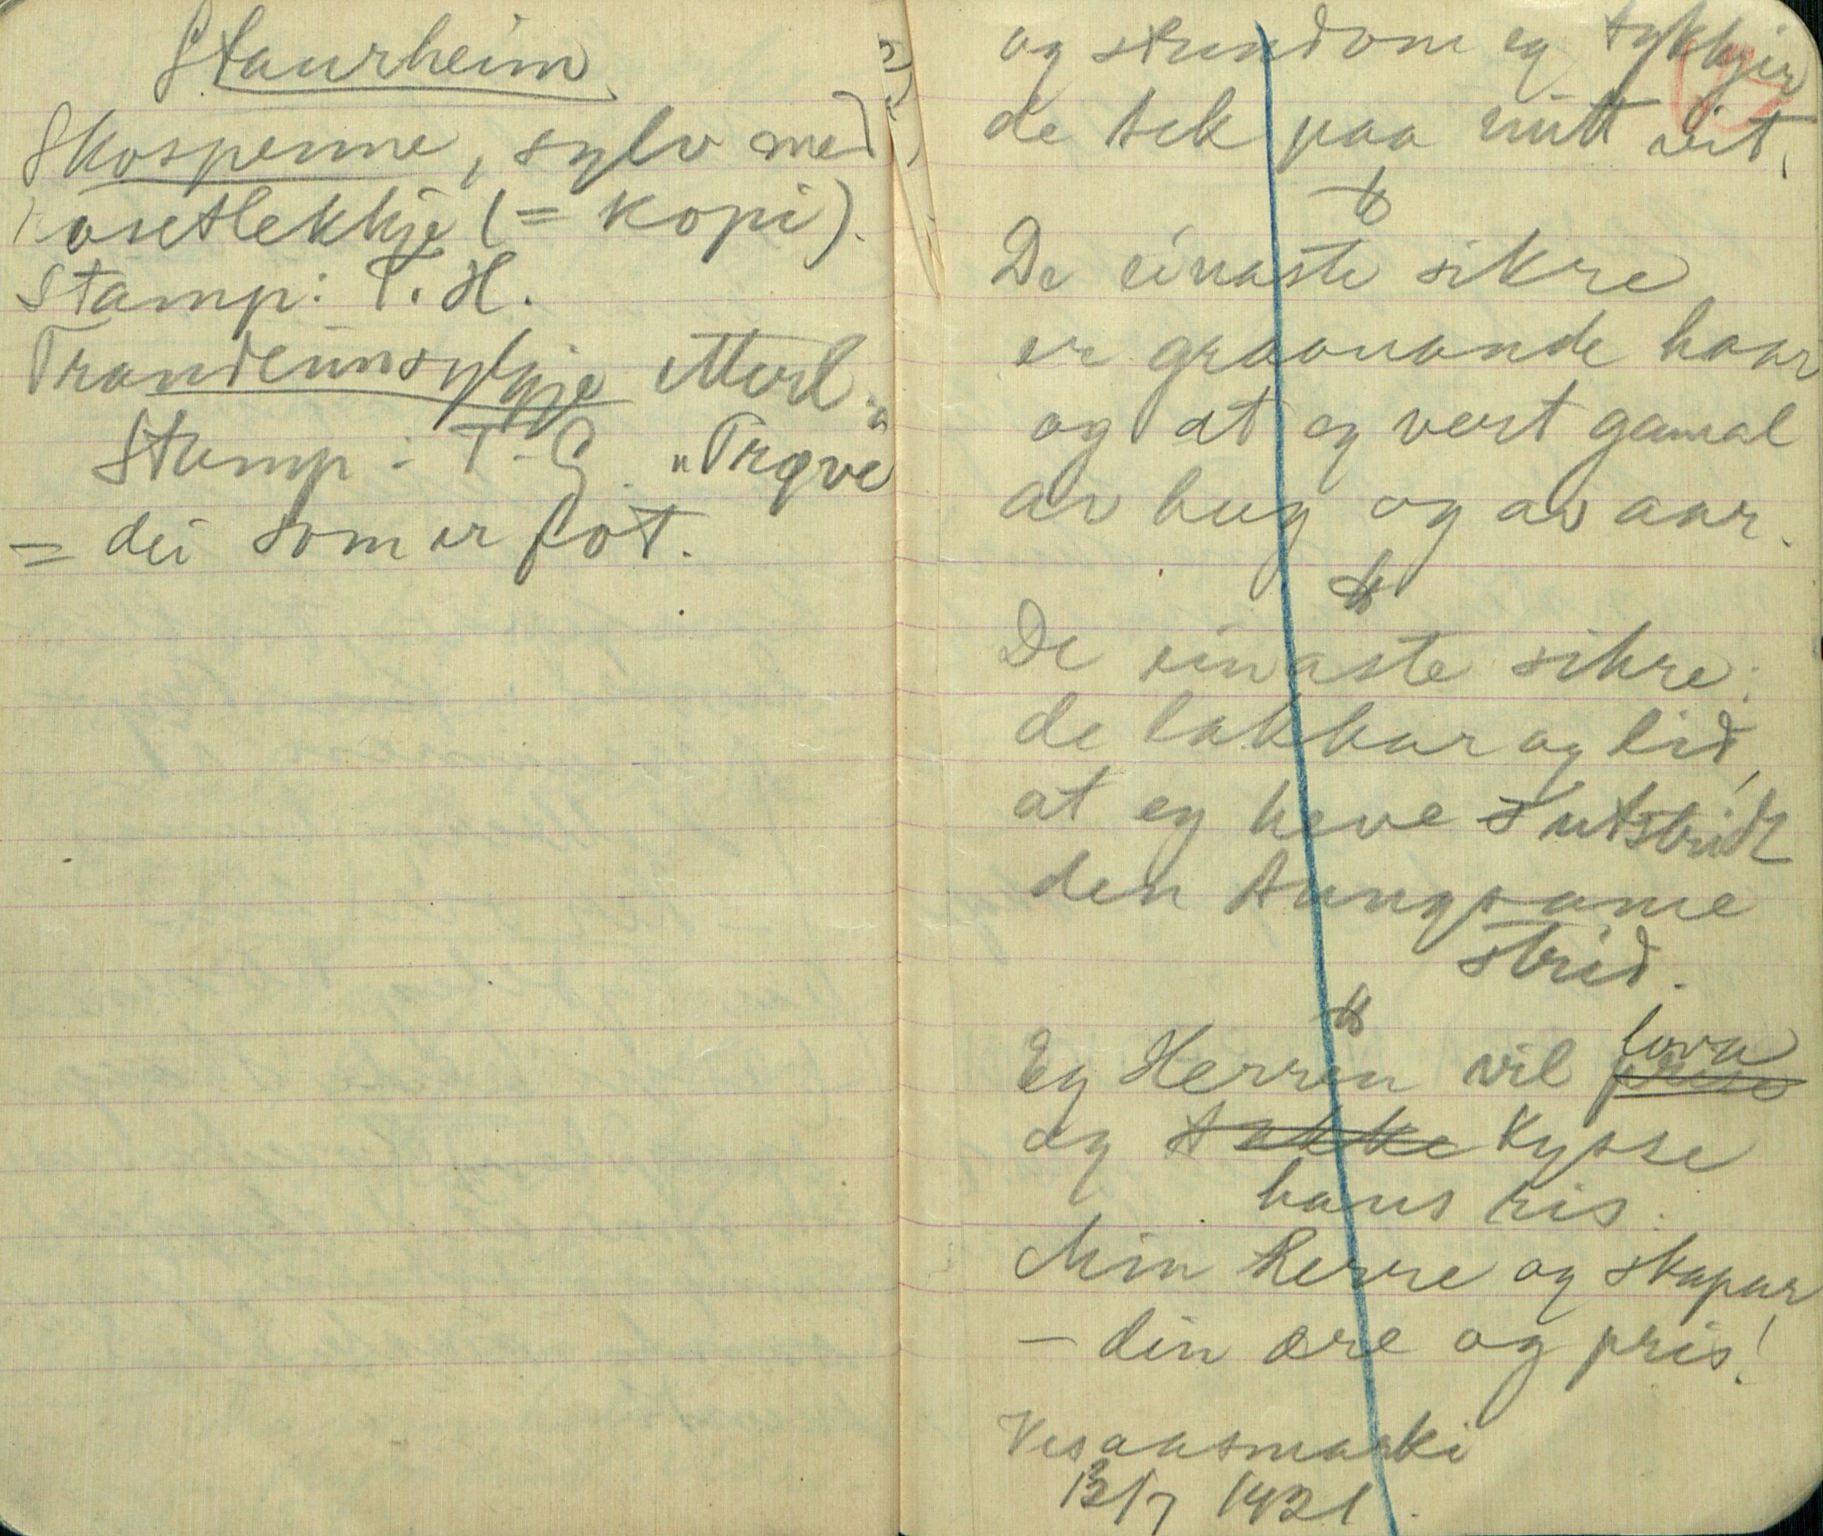 Staurheim
Skospenne, sylv med
osetlekkje (= kopi).
Stamp: T. H.
Trandeimsylgje etterl.
Stamp: T. G. "Trqve"
= dei som er fot.
og stundom eg tykkjer
de tek paa mitt vit.
De einaste sikre
er graanande haar
og at eg vert gamal
av hug og av aar.
De einaste sikre:
de lakkar og lid,
at eg heve utstridt
den tungsame
strid.
Eg Herren vil lova
og takke kysse
hans ris.
Min Herre og skapar
– din ære og pris!
Vesaasmarki
13/7 1921.